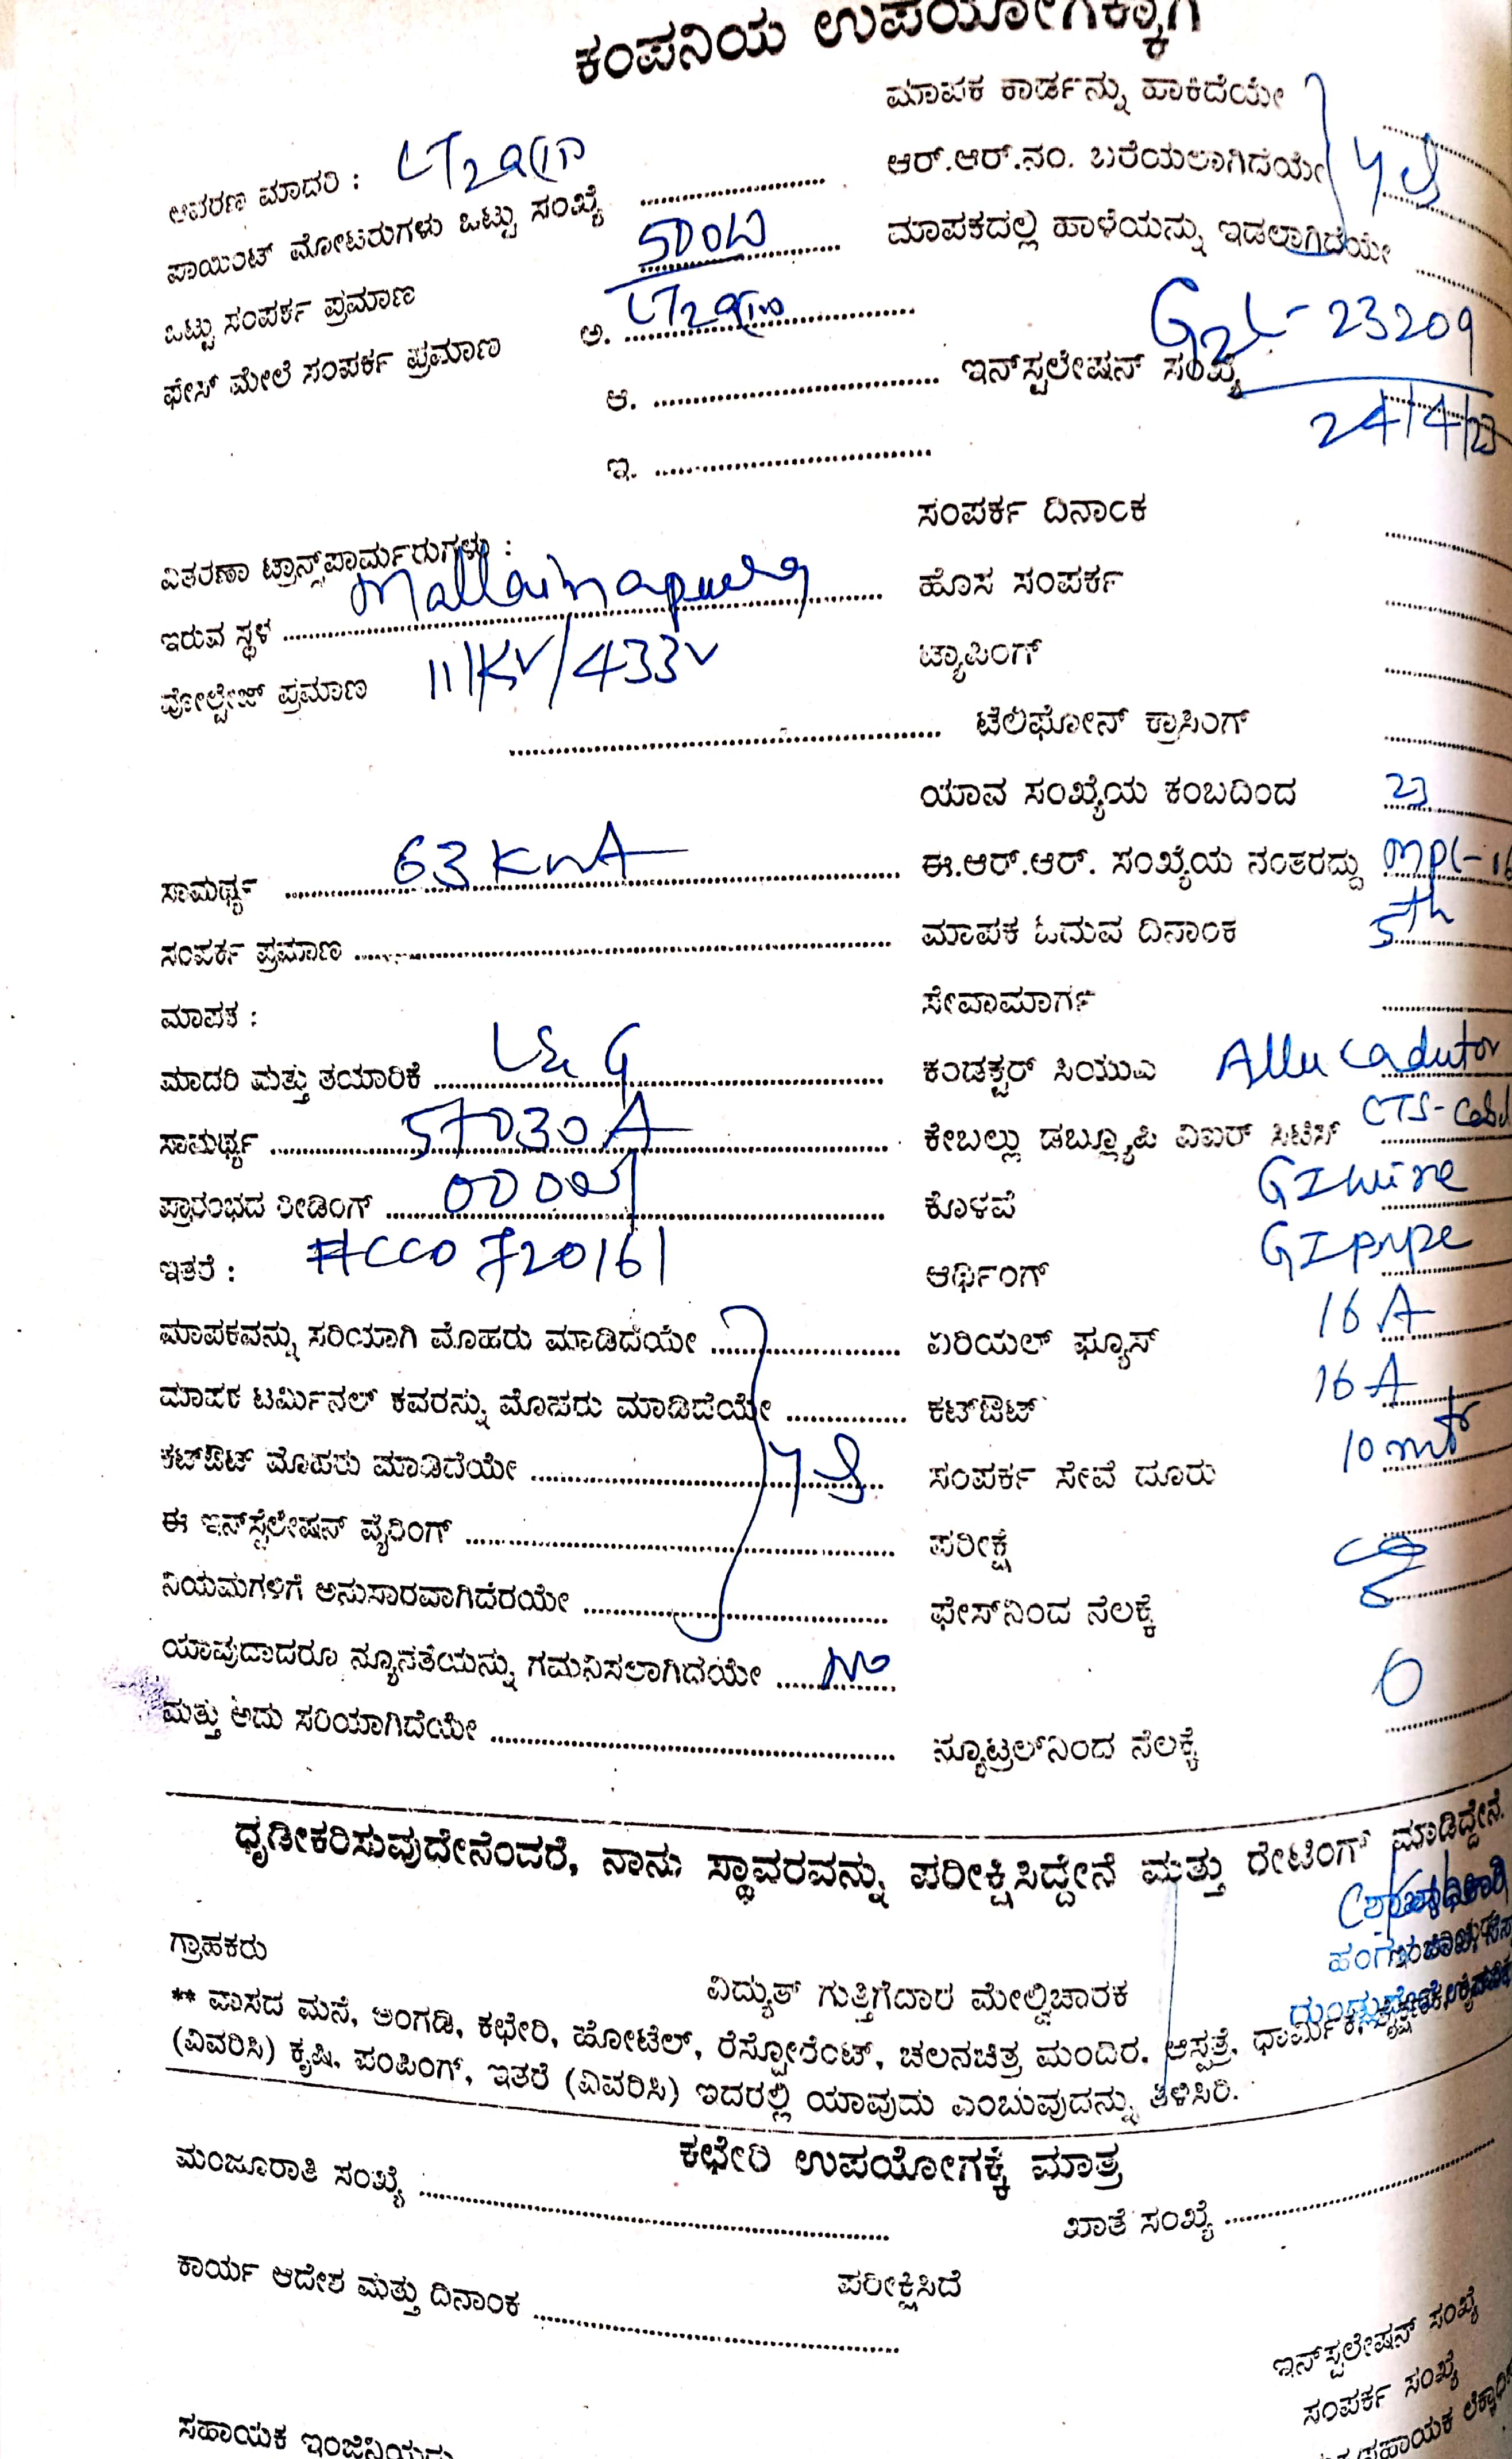 ಕಂಪನಿಯ ಉಪಯೋಗಕ್ಕಾಗಿ
ಮಾಪಕ ಕಾರ್ಡನ್ನು ಹಾಕಿದೆಯೇ
ಆವರಣ ಮಾದರಿ : LT2a(ii)
ಆರ್.ಆರ್.ನಂ. ಬರೆಯಲಾಗಿದೆಯೇ
ಪಾಯಿಂಟ್ ಮೋಟರುಗಳು ಒಟ್ಟು ಸಂಖ್ಯೆ
ಮಾಪಕದಲ್ಲಿ ಹಾಳೆಯನ್ನು ಇಡಲಾಗಿದೆಯೇ
ಒಟ್ಟು ಸಂಪರ್ಕ ಪ್ರಮಾಣ 500W
ಫೇಸ್ ಮೇಲೆ ಸಂಪರ್ಕ ಪ್ರಮಾಣ ಅ.
ಆ. ಇನ್‌ಸ್ಟಲೇಷನ್ ಸಂಖ್ಯೆ 23209
24/4/23
ಇ.
ಸಂಪರ್ಕ ದಿನಾಂಕ
ವಿತರಣಾ ಟ್ರಾನ್ಸ್‌ಪಾರ್ಮರುಗಳು :
ಹೊಸ ಸಂಪರ್ಕ
ಇರುವ ಸ್ಥಳ
ಟ್ಯಾಪಿಂಗ್
ವೋಲ್ಟೇಜ್ ಪ್ರಮಾಣ 11KV/433V
ಟೆಲಿಫೋನ್ ಕ್ರಾಸಿಂಗ್
ಯಾವ ಸಂಖ್ಯೆಯ ಕಂಬದಿಂದ
ಸಾಮರ್ಥ್ಯ 63 KVA ಈ.ಆರ್.ಆರ್. ಸಂಖ್ಯೆಯ ನಂತರದ್ದು
ಸಂಪರ್ಕ ಪ್ರಮಾಣ ಮಾಪಕ ಓದುವ ದಿನಾಂಕ 5th
ಮಾಪಕ : ಸೇವಾಮಾರ್ಗ
ಮಾದರಿ ಮತ್ತು ತಯಾರಿಕೆ L&G ಕಂಡಕ್ಟರ್ ಸಿಯುಎ
ಸಾಮರ್ಥ್ಯ ಕೇಬಲ್ಲು ಡಬ್ಲ್ಯೂಪಿ ವಿಐರ್ ಸಿಟಿಸ್
ಪ್ರಾರಂಭದ ರೀಡಿಂಗ್ ಕೊಳವೆ GI wire
ಇತರೆ : ಆರ್ಥಿಂಗ್ GI pipe
ಮಾಪಕವನ್ನು ಸರಿಯಾಗಿ ಮೊಹರು ಮಾಡಿದೆಯೇ ಏರಿಯಲ್ ಫ್ಯೂಸ್ 16 A
ಮಾಪಕ ಟರ್ಮಿನಲ್ ಕವರನ್ನು ಮೊಹರು ಮಾಡಿದೆಯೇ ಕಟ್‌ಔಟ್ 16 A
ಕಟ್‌ಔಟ್ ಮೊಹರು ಮಾಡಿದೆಯೇ ಸಂಪರ್ಕ ಸೇವೆ ದೂರು 10 mt
ಈ ಇನ್‌ಸ್ಟಲೇಷನ್ ವೈರಿಂಗ್ ಪರೀಕ್ಷೆ
ನಿಯಮಗಳಿಗೆ ಅನುಸಾರವಾಗಿದೆರಯೇ ಫೇಸ್‌ನಿಂದ ನೆಲಕ್ಕೆ
ಯಾವುದಾದರೂ ನ್ಯೂನತೆಯನ್ನು ಗಮನಿಸಲಾಗಿದೆಯೇ No
ಮತ್ತು ಅದು ಸರಿಯಾಗಿದೆಯೇ ನ್ಯೂಟ್ರಲ್‌ನಿಂದ ನೆಲಕ್ಕೆ
ಧೃಡೀಕರಿಸುವುದೇನೆಂದರೆ, ನಾನು ಸ್ಥಾವರವನ್ನು ಪರೀಕ್ಷಿಸಿದ್ದೇನೆ ಮತ್ತು ರೇಟಿಂಗ್ ಮಾಡಿದ್ದೇನೆ.
ಗ್ರಾಹಕರು ವಿದ್ಯುತ್ ಗುತ್ತಿಗೆದಾರ ಮೇಲ್ವಿಚಾರಕ
** ವಾಸದ ಮನೆ, ಅಂಗಡಿ, ಕಛೇರಿ, ಹೋಟೆಲ್, ರೆಸ್ಟೋರೆಂಟ್, ಚಲನಚಿತ್ರ ಮಂದಿರ. ಆಸ್ಪತ್ರೆ. ಧಾರ್ಮಿಕ,
(ವಿವರಿಸಿ) ಕೃಷಿ, ಪಂಪಿಂಗ್, ಇತರೆ (ವಿವರಿಸಿ) ಇದರಲ್ಲಿ ಯಾವುದು ಎಂಬುವುದನ್ನು ತಿಳಿಸಿರಿ.
ಕಛೇರಿ ಉಪಯೋಗಕ್ಕೆ ಮಾತ್ರ
ಮಂಜೂರಾತಿ ಸಂಖ್ಯೆ ಖಾತೆ ಸಂಖ್ಯೆ
ಕಾರ್ಯ ಆದೇಶ ಮತ್ತು ದಿನಾಂಕ ಪರೀಕ್ಷಿಸಿದೆ
ಇನ್‌ಸ್ಟಲೇಷನ್ ಸಂಖ್ಯೆ
ಸಂಪರ್ಕ ಸಂಖ್ಯೆ
ಸಹಾಯಕ